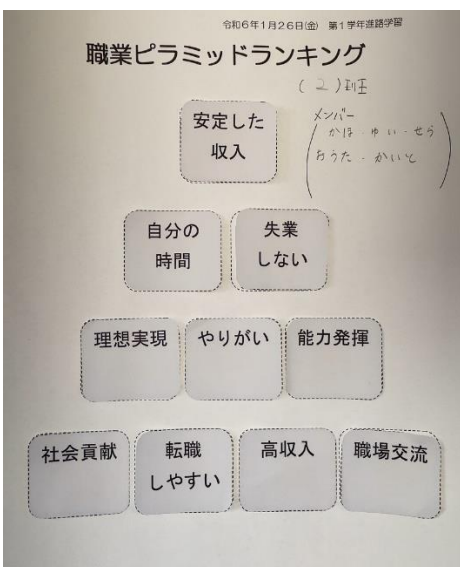 令和6年1月26日(金) 第1学年進路学習
職業ピラミッドランキング
(2)班
メンバー
かほ・ゆい・せら
おうた・かいと
安定した
収入
自分の
時間
失業
しない
理想実現
やりがい
能力発揮
社会貢献
転職
しやすい
高収入
職場交流